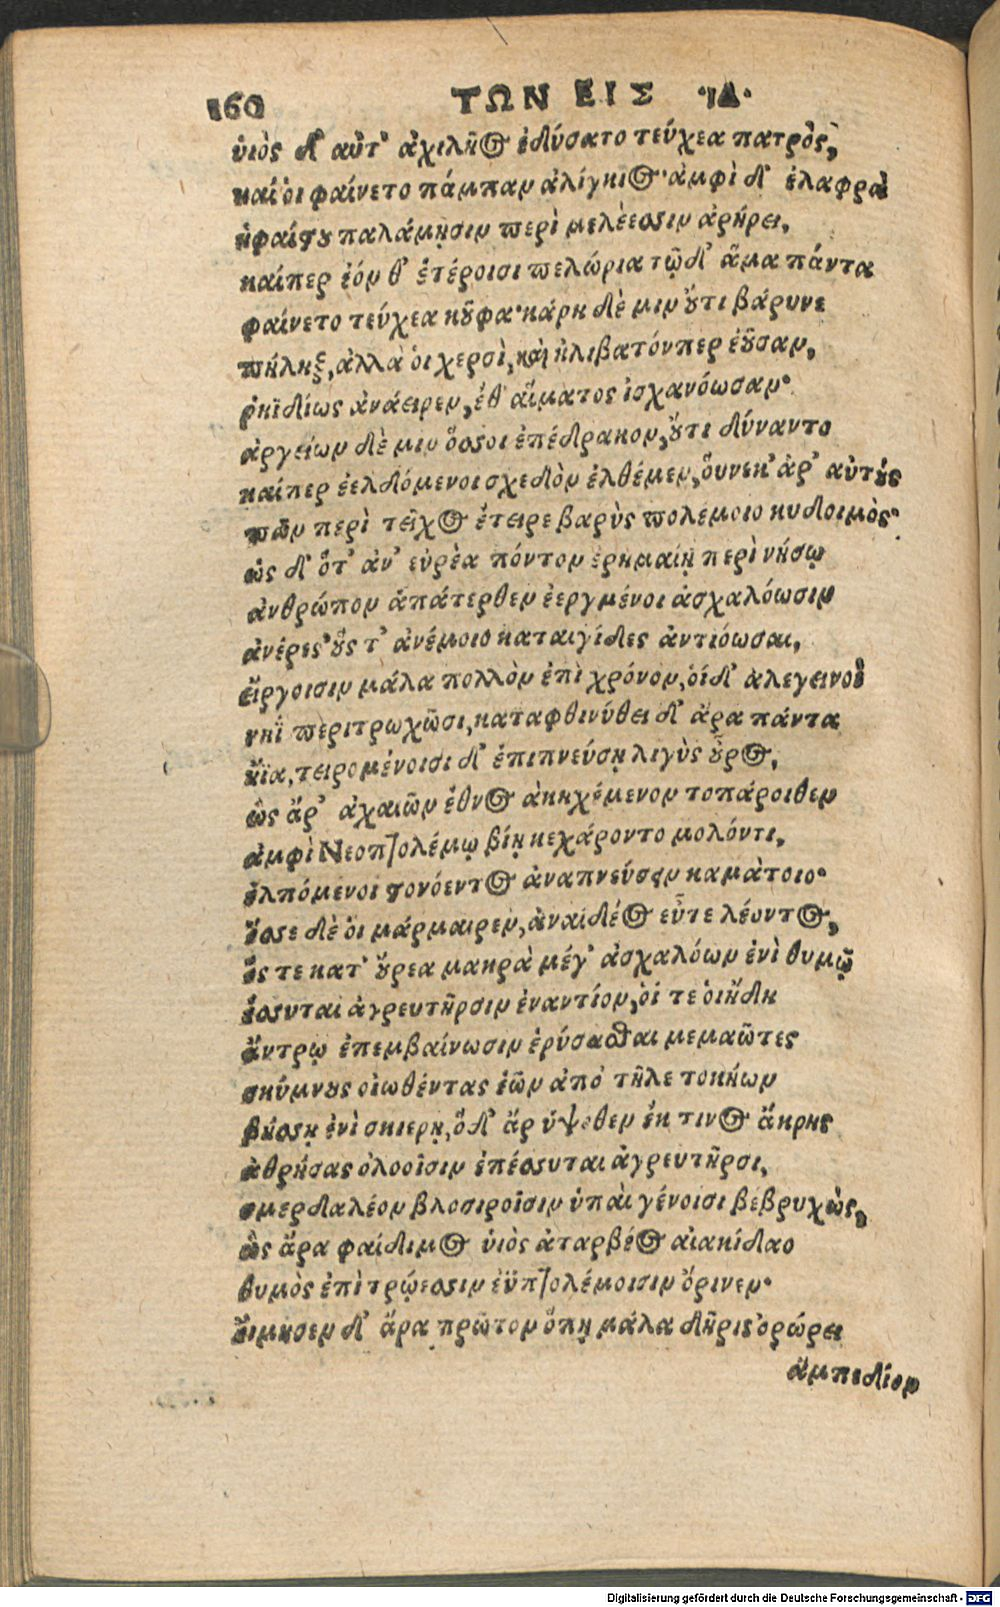 160 ΤΩΝ ΕΙΣ ·ΙΔ·
ὑιὸς δ᾽ αὖτ᾽ ἀχιλῆος ἐδύσατο τεύχεα πατρὸς,
καί ὁι φαίνετο πάμπαν ἀλίγκιος· ἀμφὶ δ᾽ ἐλαφρὰ
ἡφαίστου παλάμῃσιν περὶ μελέεσσιν ἀρήρει,
καίπερ ἐόν θ᾽ ἑτέροισι πελώρια τῷ δ᾽ ἅμα πάντα
φαίνετο τεύχεα κοῦφα· κάρη δὲ μιν οὔτι βάρυνε
πήληξ, ἀλλά ὁι χερσὶ, καὶ ἠλιβατόνπερ ἐοῦσαν,
ῥηϊδίως ἀνάειρεν, ἔθ᾽ αἵματος ἰσχανόωσαν·
ἀργείων δὲ μιν ὅσσοι ἐπέδρακον, οὔτι δύναντο
καίπερ ἐελδόμενοι σχεδὸν ἐλθέμεν, οὕνεκ᾽ ἀρ᾽ αὐτοὺς
πᾶν περὶ τεῖχος ἔτειρε βαρὺς πολέμοιο κυδοιμὸς·
ὡς δ᾽ ὅτ᾽ ἀν᾽ εὐρέα πόντον ἐρημαίῃ περὶ νήσῳ
ἀνθρώπον ἀπάτερθεν ἐεργμένοι ἀσχαλόωσιν
ἀνέρες· οὕς τ᾽ ἀνέμοιο καταιγίδες ἀντιόωσαι,
εἴργοισιν μάλα πολλὸν ἐπὶ χρόνον, ὁί δ᾽ ἀλεγεινοὶ
νηῒ περιτρωχῶσι, καταφθινύθει δ᾽ ἄρα πάντα
ἤϊα, τειρομένοισι δ᾽ ἐπιπνεύσῃ λιγὺς οὖρος,
ὣς ἄρ᾽ ἀχαιῶν ἔθνος ἀκηχέμενον τοπάροιθεν
ἀμφὶ Νεοπτολέμῳ βίῃ κεχάροντο μολόντι,
ἐλπόμενοι στονόεντος ἀναπνεύσειν καμὰτοιο·
ὄσσε δὲ ὁι μάρμαιρεν, ἀναιδέος εὖτε λέοντος,
ὅς τε κατ᾽ οὔρεα μακρὰ μέγ᾽ ἀσχαλόων ἐνὶ θυμῷ
ἔσσυται ἀγρευτῆρσιν ἐναντίον, ὁί τε ὁι ἤδη
ἄντρῳ ἐπεμβαίνωσιν ἐρύσασθαι μεμαῶτες
σκύμνους οἰωθέντας ἑῶν ἀπὸ τῆλε τοκήων
βήσσῃ ἐνὶ σκιερῇ, ὅ δ᾽ ἄρ ὑψόθεν ἔκ τινος ἄκρης
ἀθρήσας ὀλοοῖσιν ἐπέσσυται ἀγρευτῆρσι,
σμερδαλέον βλοσιροῖσιν ὑπαὶ γένοισι βεβρυχὼς,
ὣς ἄρα φαίδιμος ὑιὸς ἀταρβέος αἰακίδαο
θυμὸς ἐπὶ τρώεσσιν ἐϋπτολέμοισιν ὄρινεν·
οἴμησεν δ᾽ ἄρα πρῶτον ὅπῃ μάλα δῆρις ὀρώρει
ἂμπεδίον
Digitalisierung gefördert durch die Deutsche Forschungsgemeinschaft - DFG